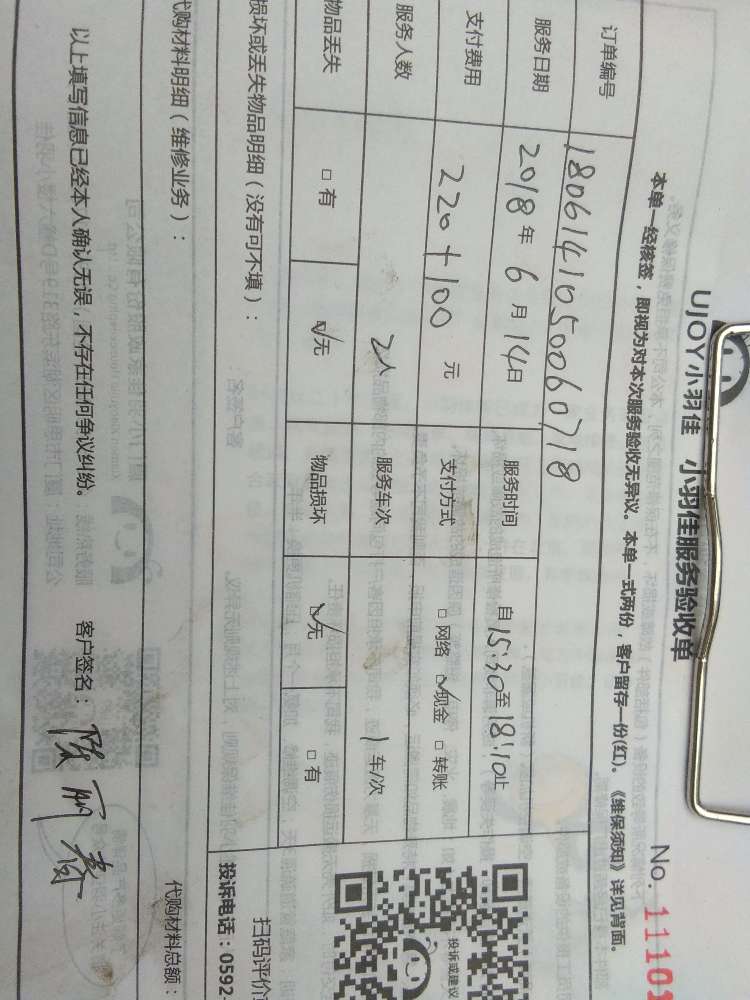 UJOY小羽佳 小羽佳服务验收单
No. 1110
本单一经核签，即视为对本次服务验收无异议。本单一式两份，客户留存一份(红)。《维保须知》详见背面。
订单编号 1806141050060718
服务日期 2018年6月14日 服务时间 自15:30至18:10止
支付费用 220+100 元 支付方式 □网络 ☑现金 □转账
服务人数 2人 服务车次 1车/次
物品丢失 □有 ☑无 物品损坏 ☑无 □有
投诉或建议
扫码评价
损坏或丢失物品明细（没有可不填）：
投诉电话：0592
代购材料明细（维修业务）： 代购材料总额：
以上填写信息已经本人确认无误，不存在任何争议纠纷。 客户签名：